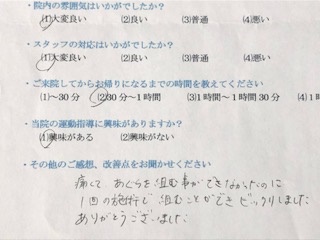 ・院内の雰囲気はいかがでしたか？
(1)大変良い (2)良い (3)普通 (4)悪い
・スタッフの対応はいかがでしたか？
(1)大変良い (2)良い (3)普通 (4)悪い
・ご来院してからお帰りになるまでの時間を教えてください
(1)～30分 (2)30分～1時間 (3)1時間～1時間30 (4)1
・当院の運動指導に興味がありますか？
(1)興味がある (2)興味がない
・その他のご感想、改善点をお聞かせください
痛くて あぐらを組む事ができなかったのに
1回の施術で組むことができ ビックリしました
ありがとうございました